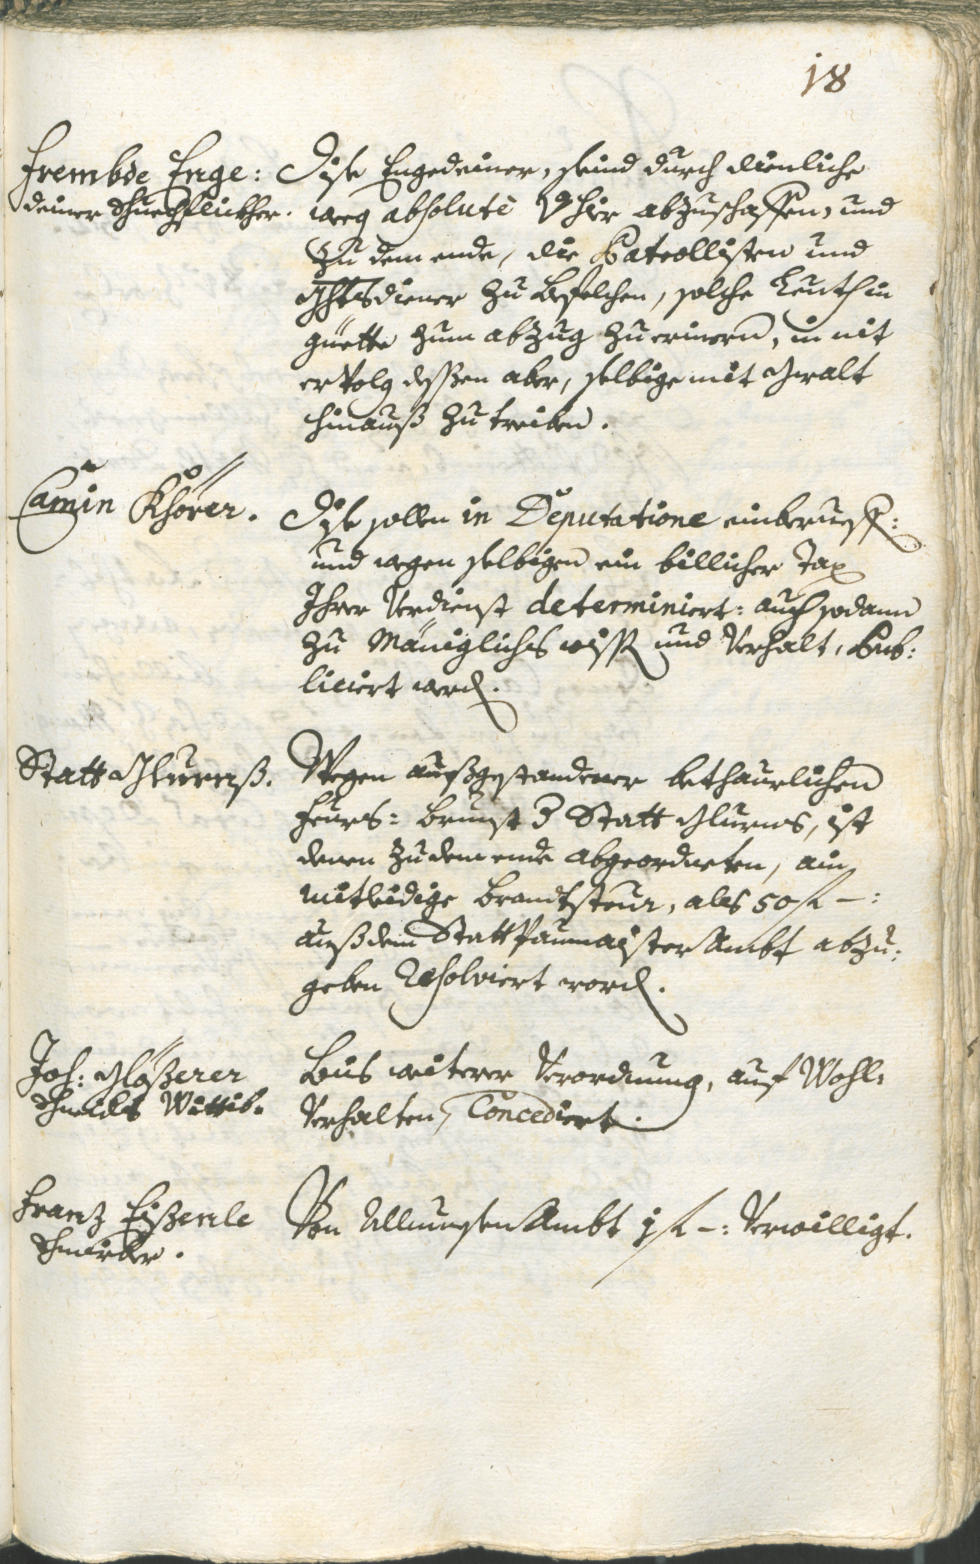 18
Frembde Enge:
deiner Schuechflickher.
Dise Engedeiner, seind durch dienliche
weeg absolutè von hier abzuschaffen, und
zu dem ende, die Patrollisten und
Ghtsdiener zu befelchen, solche Leuth in
güette zum abzug zu erinern, in nit
ervolg dessen aber, selbige mit Gwalt
hinauß zu treiben.
Camin Khörer.
Dise sollen in Deputatione einberueff:
und wegen selbigen ein billicher Tax
Ihrer Verdienst determiniert: auch sodann
zu Mäniglichs wiss und Verhalt, Pub:
liciert werd.
Statt Glurnß.
Wegen außgestandener bethaurlichen
Feurs: brunst d Statt Glurns, ist
denen zu dem ende abgeordneten, ain
mitleidige Brandtsteur, als 50 fl -:
auß dem Statt Paumaister Ambt abzu:
geben Resolviert word.
Joh: Glößerer
Schmidts Wittib.
Bis weiterer Verordnung, auf Wohl:
Verhalten, Concediert.
Franz Eißenle
Von Allmuesen Ambt 1 fl -: Verwilligt.